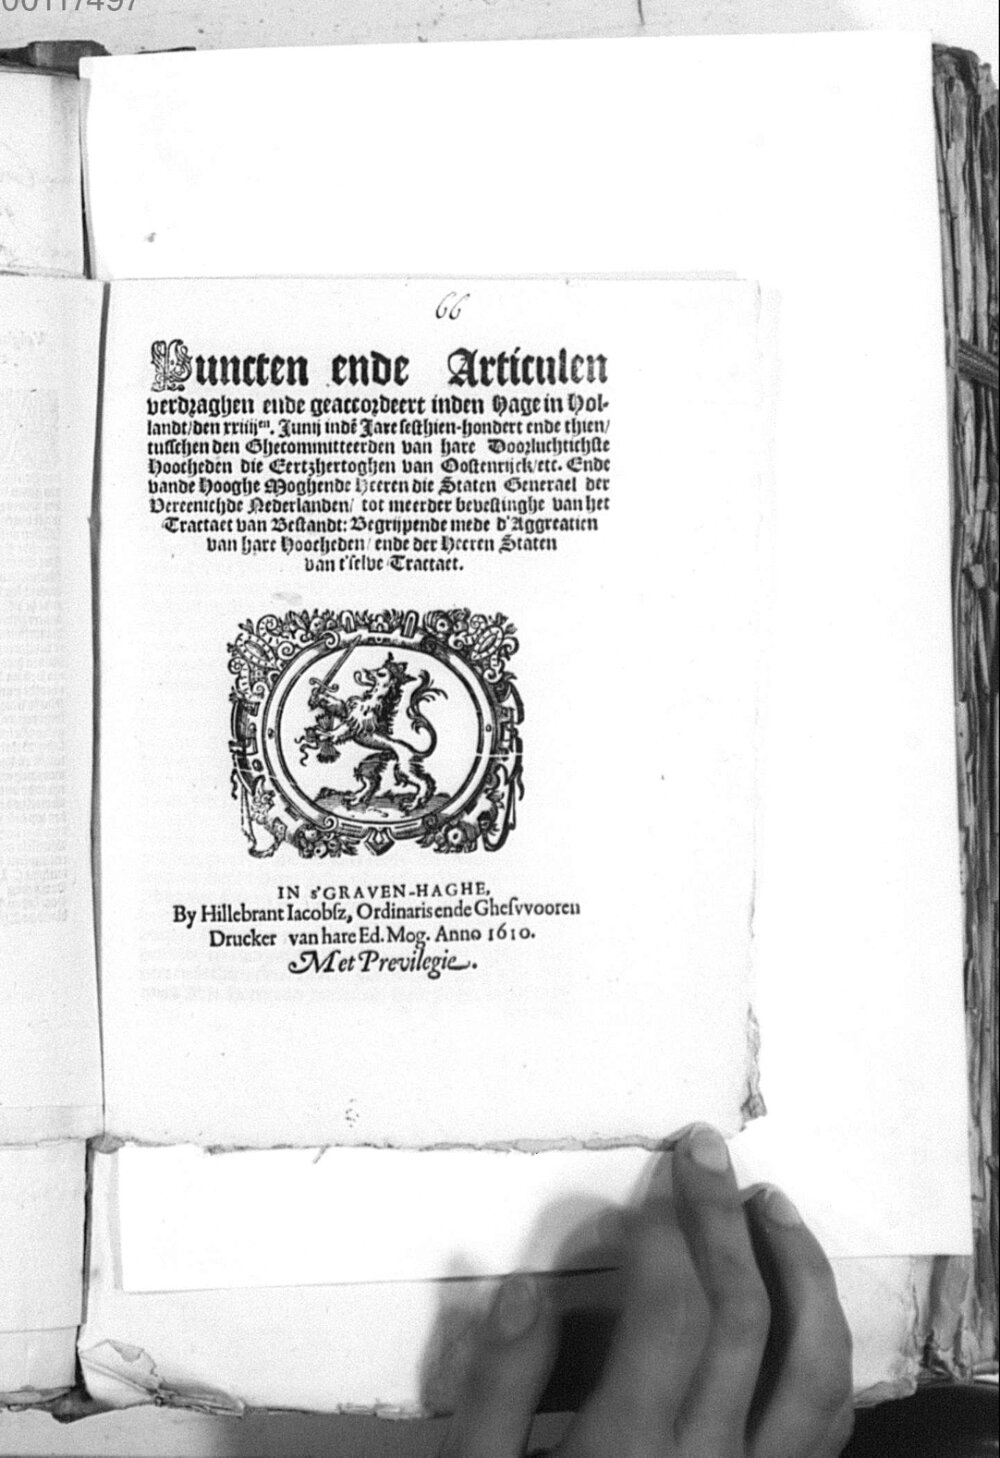 00117497
66
Puncten ende Articulen
verdraghen ende geaccordeert inden Hage in Hol-
landt/den xxiiijen. Junij indē Jare sesthien-hondert ende thien/
tusschen den Ghecommitteerden van hare Doorluchtichste
Hoocheden die Eertzhertoghen van Oostenrijck/etc. Ende
vande Hooghe Moghende Heeren die Staten Generael der
Vereenichde Nederlanden/ tot meerder bevestinghe van het
Tractaet van Bestandt: Begrijpende mede d'Aggreatien
van hare Hoocheden/ ende der Heeren Staten
van t'selve Tractaet.
IN s'GRAVEN-HAGHE,
By Hillebrant Iacobsz, Ordinaris ende Ghesvvooren
Drucker van hare Ed. Mog. Anno 1610.
Met Previlegie.